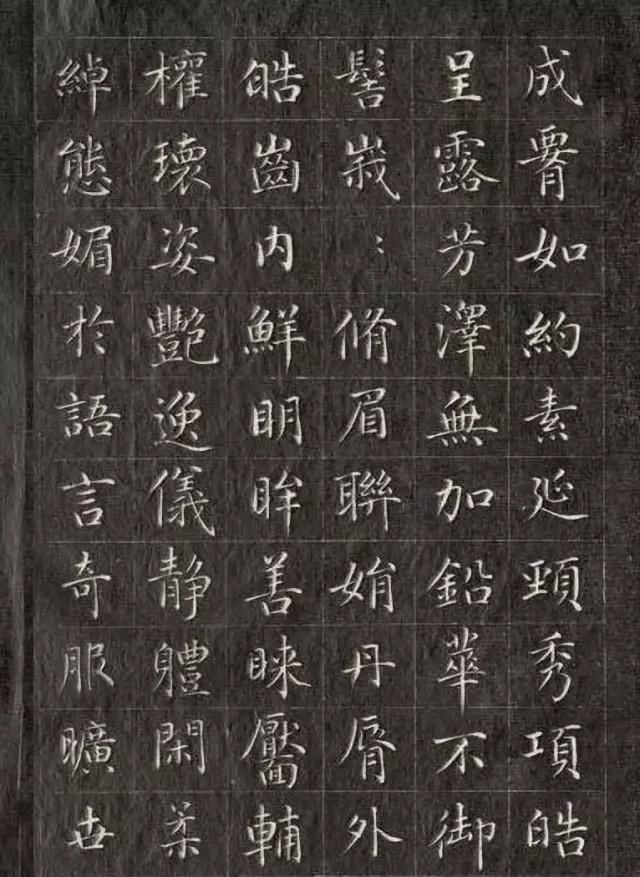 成如約素延頸秀項皓
呈露芳澤無加鉛華不御
髻峩〻脩眉聯娟丹脣外
皓齒内鮮明眸善睞靨輔
權瓌姿豔逸儀静軆閑柔
綽態媚於語言奇服曠世